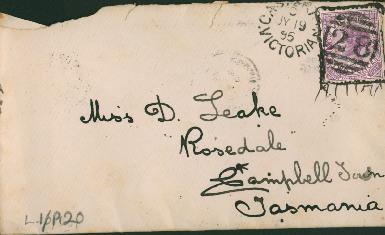 JY 19
95
VICTORIA
28
Miss D. Leake
Rosedale
Campbell Town
Tasmania
L.1/A20